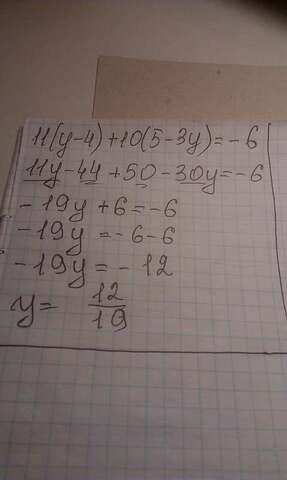 11(y-4)+10(5-3y)=-6
11y-44+50-30y=-6
-19y+6=-6
-19y=-6-6
-19y=-12
y= 12/19